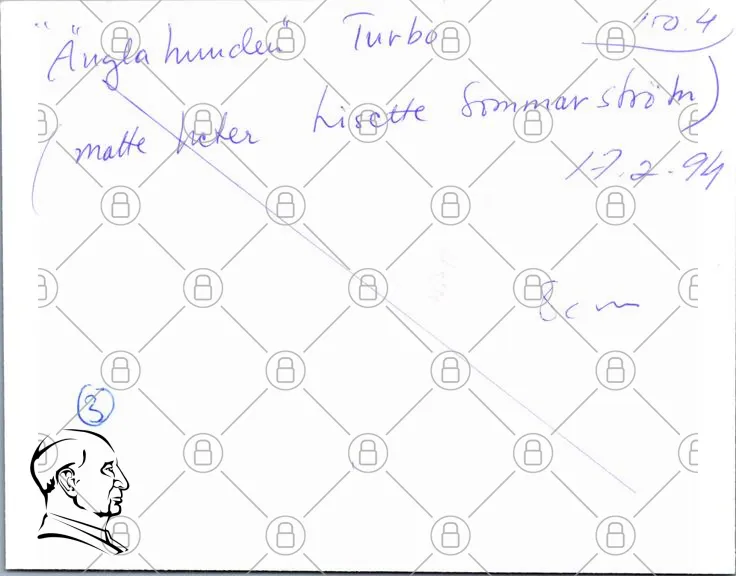 "Änglahunden" Turbo 150.4
(matte heter Lisette Sommarström)
17.2.94
8cm
3